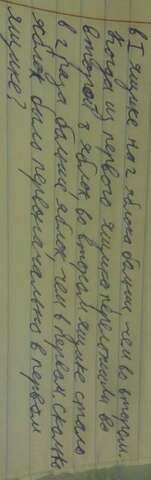 в I ящике на 2 яблока больше чем во втором.
Когда из первого ящика переложили во
второй 9 яблок во втором ящике стало
в 2 раза больше яблок, чем в первом сколько
яблок было первоначально в первом
ящике?